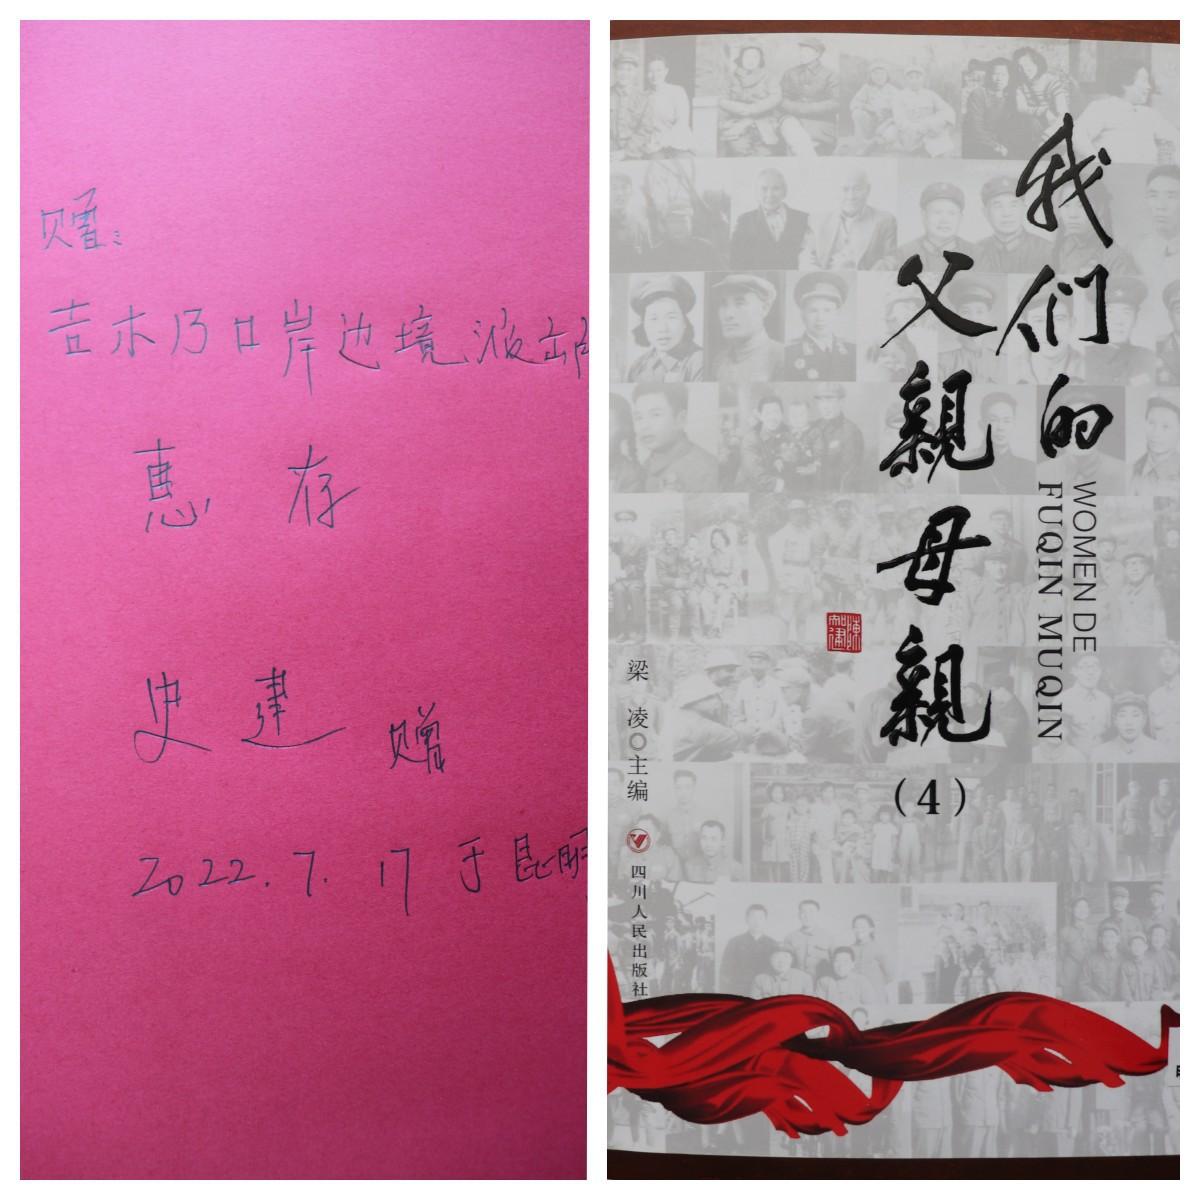 赠:
吉木乃口岸边境派出所
惠存
史建 赠
2022.7.17 于昆明
我们的
父親母親
(4)
WOMEN DE
FUQIN MUQIN
梁 凌○主编
四川人民出版社